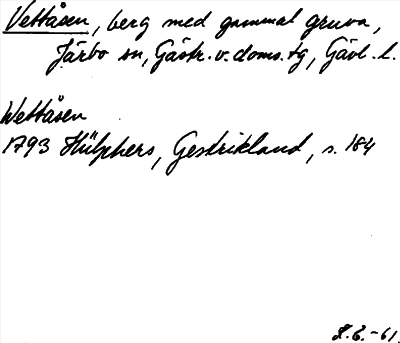 Vettåsen, berg med gammal gruva,
Järbo sn, Gästr. v. doms. tg, Gävl. l.
Wettåsen
1793 Hülphers, Gestrikland, s. 184
L.E.-61.